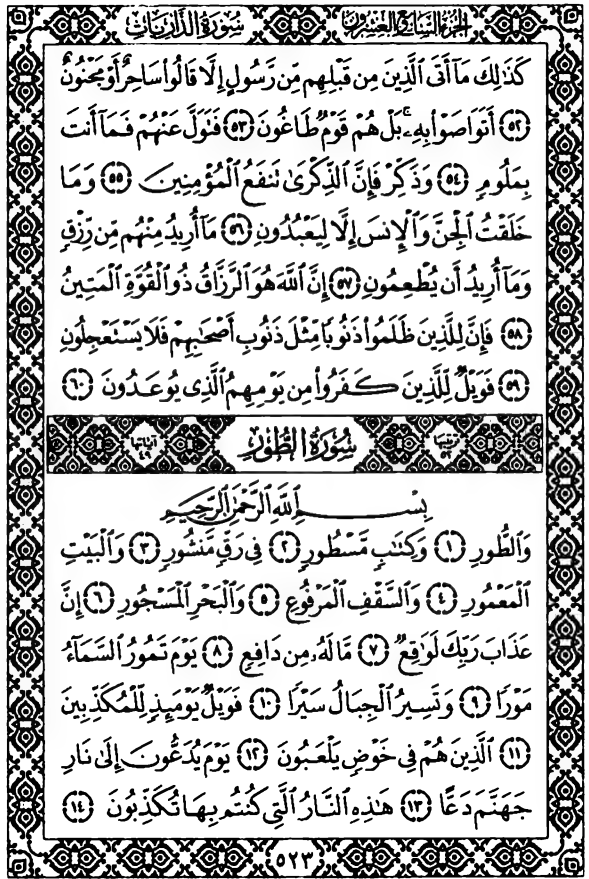 سورة الذاريات
الجزء السابع والعشرون
كَذَٰلِكَ مَآ أَتَى ٱلَّذِينَ مِن قَبْلِهِم مِّن رَّسُولٍ إِلَّا قَالُوا۟ سَاحِرٌ أَوْ مَجْنُونٌ
٥٢ أَتَوَاصَوْا۟ بِهِۦ ۚ بَلْ هُمْ قَوْمٌ طَاغُونَ ٥٣ فَتَوَلَّ عَنْهُمْ فَمَآ أَنتَ
بِمَلُومٍ ٥٤ وَذَكِّرْ فَإِنَّ ٱلذِّكْرَىٰ تَنفَعُ ٱلْمُؤْمِنِينَ ٥٥ وَمَا
خَلَقْتُ ٱلْجِنَّ وَٱلْإِنسَ إِلَّا لِيَعْبُدُونِ ٥٦ مَآ أُرِيدُ مِنْهُم مِّن رِّزْقٍ
وَمَآ أُرِيدُ أَن يُطْعِمُونِ ٥٧ إِنَّ ٱللَّهَ هُوَ ٱلرَّزَّاقُ ذُو ٱلْقُوَّةِ ٱلْمَتِينُ
٥٨ فَإِنَّ لِلَّذِينَ ظَلَمُوا۟ ذَنُوبًا مِّثْلَ ذَنُوبِ أَصْحَٰبِهِمْ فَلَا يَسْتَعْجِلُونِ
٥٩ فَوَيْلٌ لِّلَّذِينَ كَفَرُوا۟ مِن يَوْمِهِمُ ٱلَّذِى يُوعَدُونَ ٦٠
ترتيبها ٥٢ سُورَةُ الطُّورِ آياتها ٤٩
بِسْمِ ٱللَّهِ ٱلرَّحْمَٰنِ ٱلرَّحِيمِ
وَٱلطُّورِ ١ وَكِتَٰبٍ مَّسْطُورٍ ٢ فِى رَقٍّ مَّنشُورٍ ٣ وَٱلْبَيْتِ
ٱلْمَعْمُورِ ٤ وَٱلسَّقْفِ ٱلْمَرْفُوعِ ٥ وَٱلْبَحْرِ ٱلْمَسْجُورِ ٦ إِنَّ
عَذَابَ رَبِّكَ لَوَٰقِعٌ ٧ مَّا لَهُۥ مِن دَافِعٍ ٨ يَوْمَ تَمُورُ ٱلسَّمَآءُ
مَوْرًا ٩ وَتَسِيرُ ٱلْجِبَالُ سَيْرًا ١٠ فَوَيْلٌ يَوْمَئِذٍ لِّلْمُكَذِّبِينَ
١١ ٱلَّذِينَ هُمْ فِى خَوْضٍ يَلْعَبُونَ ١٢ يَوْمَ يُدَعُّونَ إِلَىٰ نَارِ
جَهَنَّمَ دَعًّا ١٣ هَٰذِهِ ٱلنَّارُ ٱلَّتِى كُنتُم بِهَا تُكَذِّبُونَ ١٤
٥٢٣